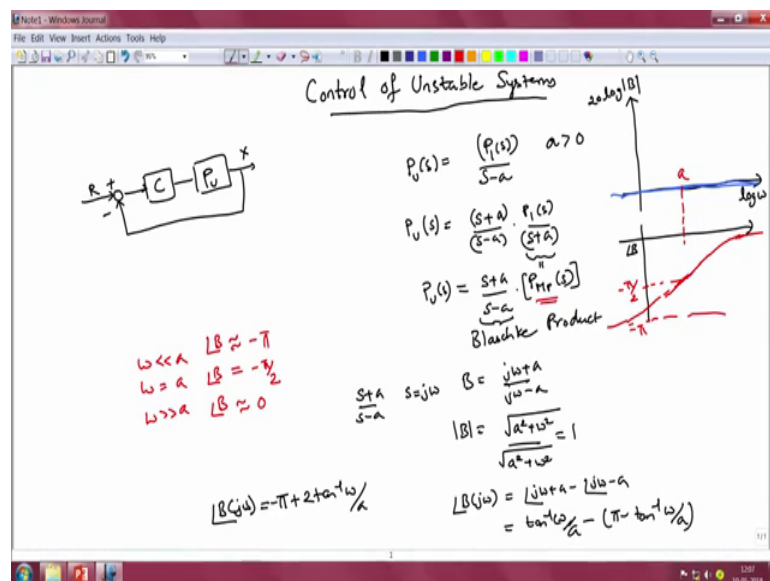 Note1 - Windows Journal
File Edit View Insert Actions Tools Help
Control of Unstable Systems
20 log|B|
R + - C P_U X
P_U(s) = (P_1(s)) / (s-a) a>0
a
log ω
P_U(s) = (s+a)/(s-a) · P_1(s)/(s+a)
∠B
"
P_U(s) = (s+a)/(s-a) · [P_MP(s)]
-π/2
Blaschke Product
-π
ω<<a ∠B ≈ -π
ω=a ∠B = -π/2
ω>>a ∠B ≈ 0
(s+a)/(s-a) s=jω B = (jω+a)/(jω-a)
|B| = √(a²+ω²)/√(a²+ω²) = 1
∠B(jω) = -π+2tan⁻¹ω/a
∠B(jω) = ∠jω+a - ∠jω-a
= tan⁻¹ω/a - (π-tan⁻¹ω/a)
1
1/1
12:07